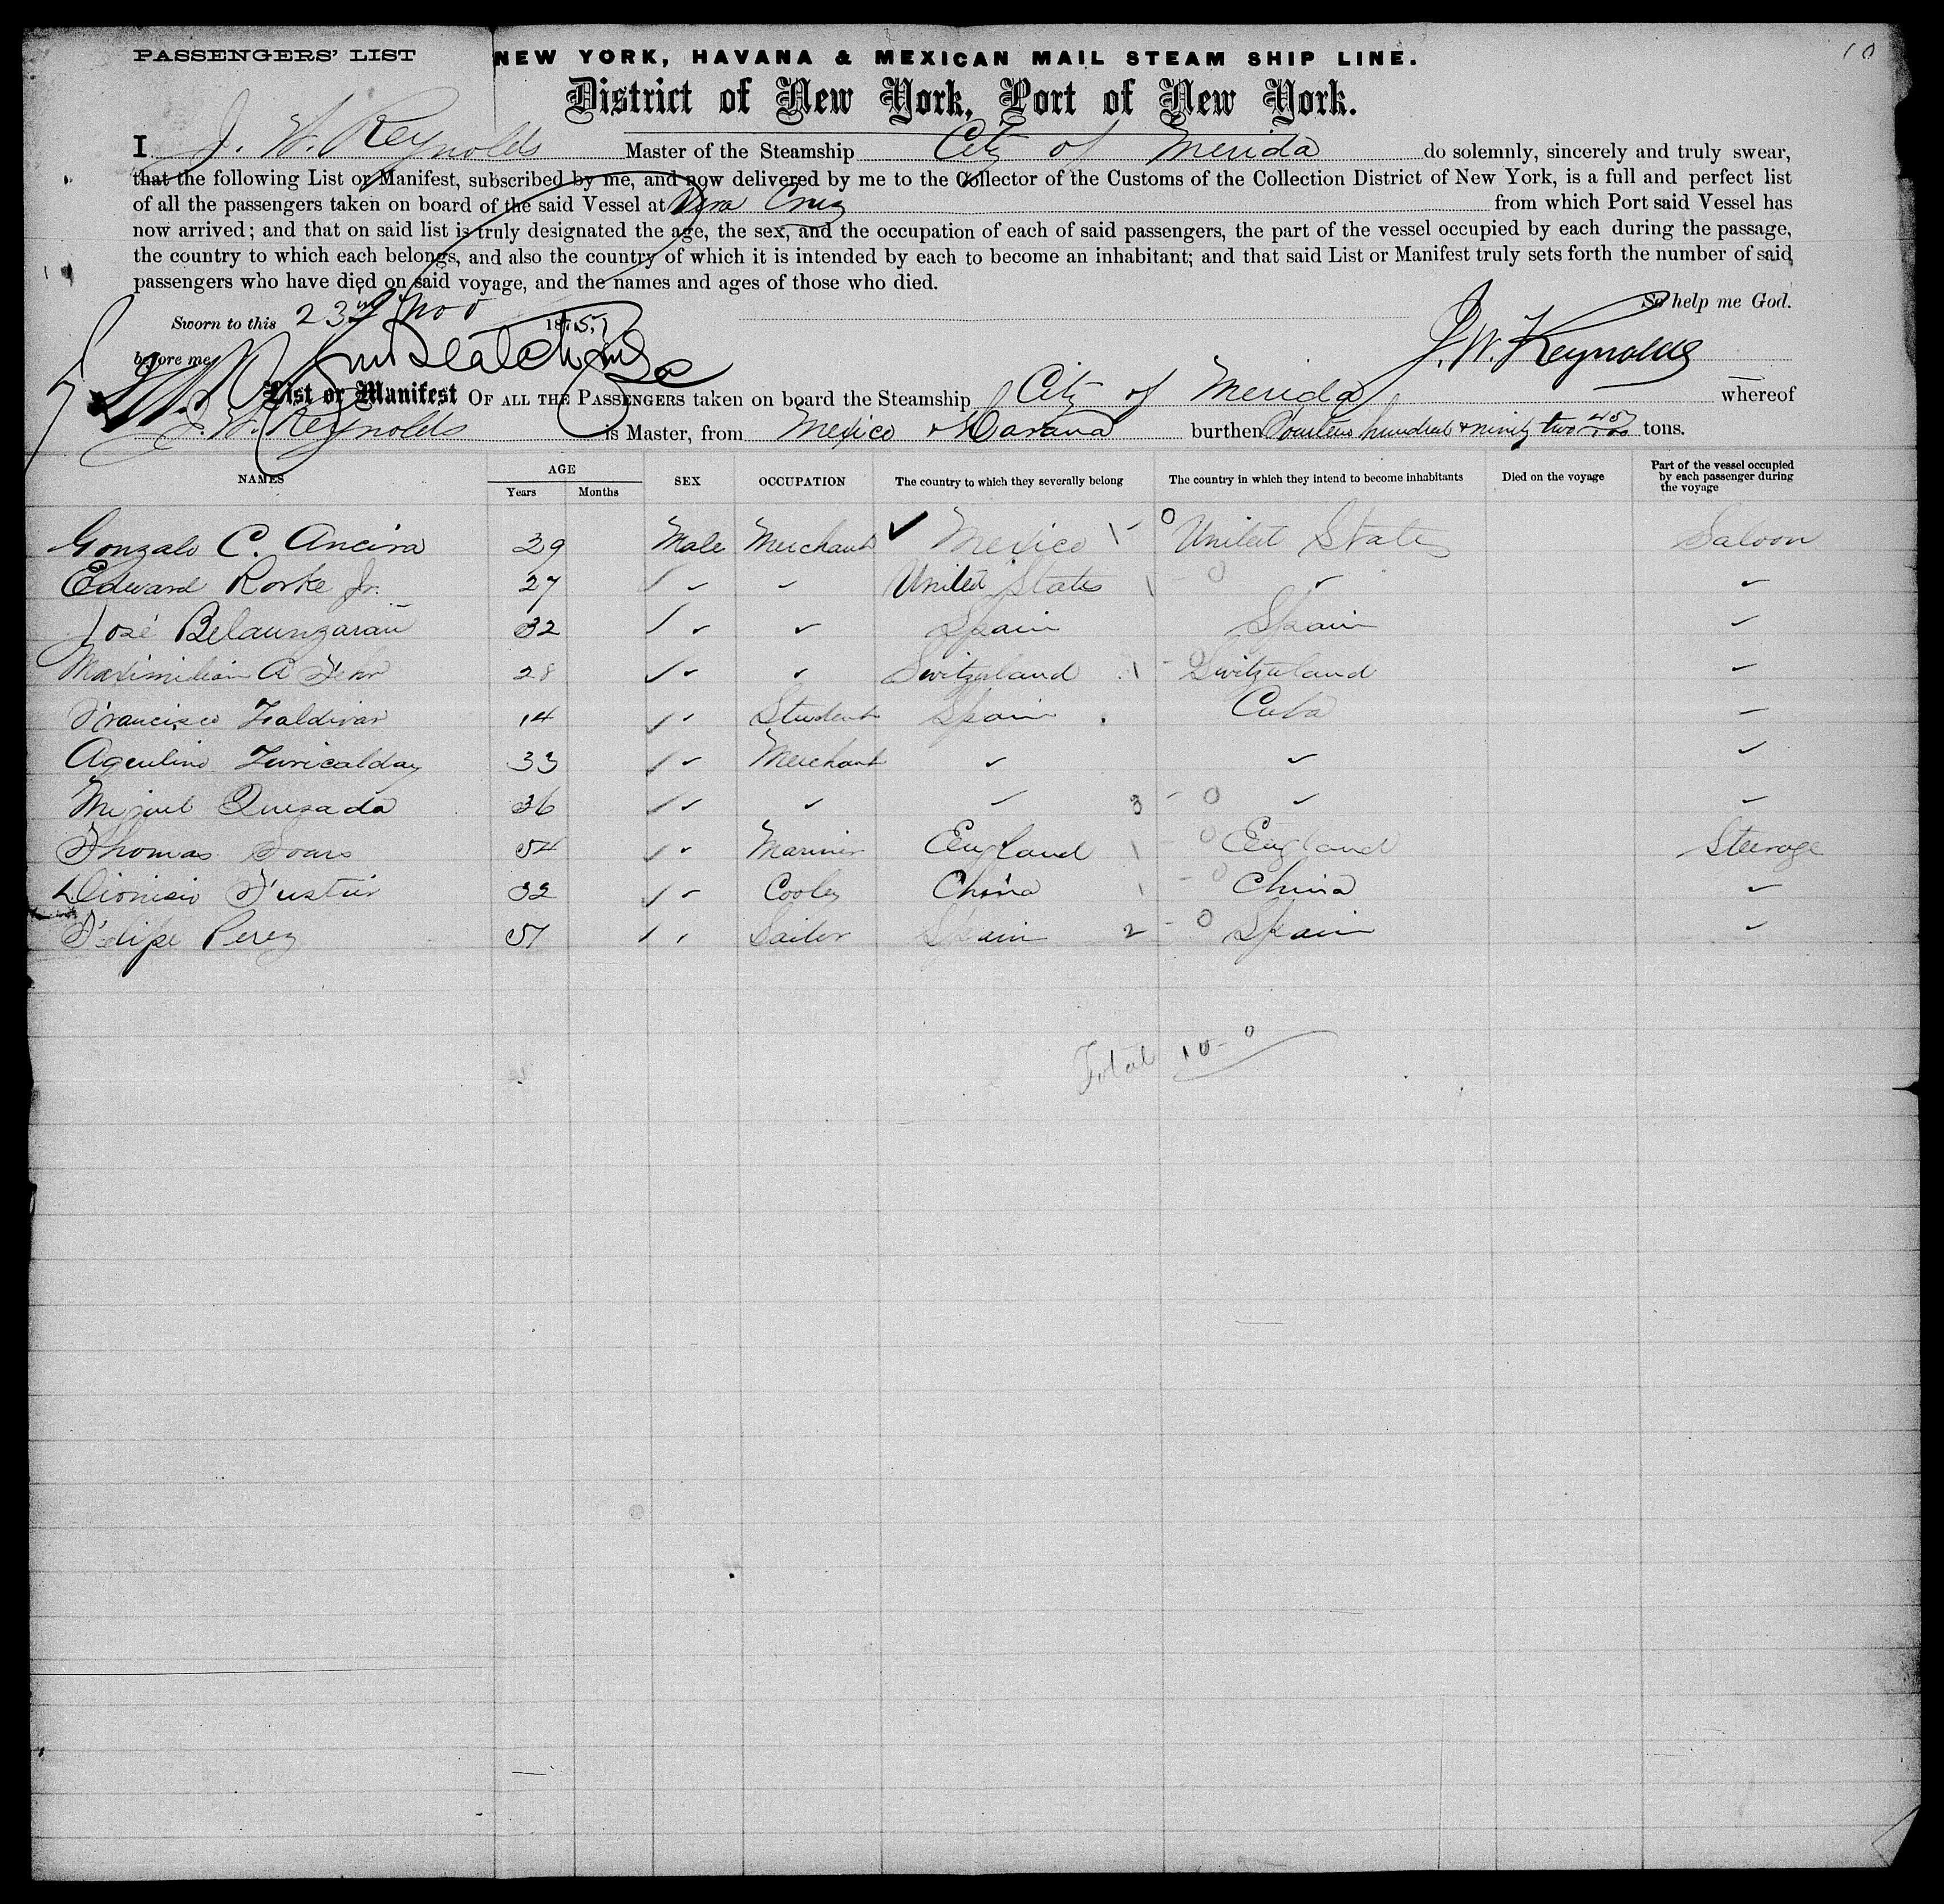 10
PASSENGERS' LIST
NEW YORK, HAVANA & MEXICAN MAIL STEAM SHIP LINE.
District of New York, Port of New York.
I J. W. Reynolds Master of the Steamship City of Merida do solemnly, sincerely and truly swear,
that the following List or Manifest, subscribed by me, and now delivered by me to the Collector of the Customs of the Collection District of New York, is a full and perfect list
of all the passengers taken on board of the said Vessel at Vera Cruz from which Port said Vessel has
now arrived; and that on said list is truly designated the age, the sex, and the occupation of each of said passengers, the part of the vessel occupied by each during the passage,
the country to which each belongs, and also the country of which it is intended by each to become an inhabitant; and that said List or Manifest truly sets forth the number of said
passengers who have died on said voyage, and the names and ages of those who died.
So help me God.
Sworn to this 23rd Nov 187
before me J. W. Reynolds
List or Manifest OF ALL THE PASSENGERS taken on board the Steamship City of Merida whereof
J. W. Reynolds is Master, from Mexico & Havana burthen Fourteen hundred & ninety two 45/100 tons.
NAMES AGE Years Months SEX OCCUPATION The country to which they severally belong The country in which they intend to become inhabitants Died on the voyage Part of the vessel occupied by each passenger during the voyage
Gonzalo C. Ancira 29 Male Merchant ✓ Mexico 1 - 0 United States Saloon
Edward Rorke Jr. 27 ✓ ✓ United States 1 - 0 ✓ ✓
José Belaunzaran 32 ✓ ✓ Spain Spain ✓
Maximilian A 28 ✓ ✓ Switzerland 1 - 0 Switzerland ✓
Francisco Zaldivar 14 ✓ Student Spain Cuba ✓
Zuricalday 33 ✓ Merchant ✓ ✓ ✓
Miguel Quesada 36 ✓ ✓ ✓ 3 - 0 ✓ ✓
Thomas 54 ✓ Mariner England 1 - 0 England Steerage
Dionisio 32 ✓ Cooley China 1 - 0 China ✓
Felipe Perez 51 ✓ Sailor Spain 2 - 0 Spain ✓
Total 10 - 0